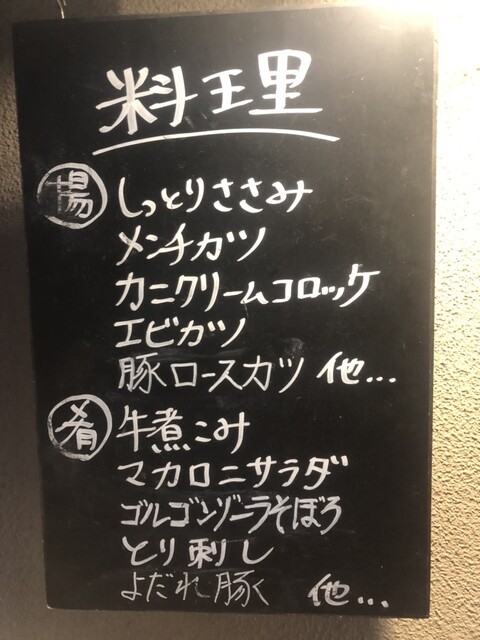 料理
揚 しっとりささみ
メンチカツ
カニクリームコロッケ
エビカツ
豚ロースカツ 他...
肴 牛煮こみ
マカロニサラダ
ゴルゴンゾーラそぼろ
とり刺し
よだれ豚く 他...